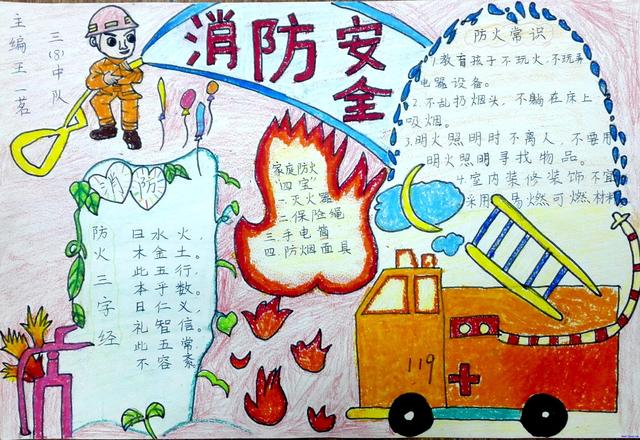 消防安全
三(8)中队
主编王一茗
防火常识
1.教育孩子不玩火,不玩弄
电器设备。
2.不乱扔烟头,不躺在床上
吸烟。
3.明火照明时不离人,不要用
明火照明寻找物品。
4.室内装修装饰不宜
采用易燃可燃材料
家庭防火
"四宝"
一.灭火器
二.保险绳
三.手电筒
四.防烟面具
消防
防火三字经
日水火,
木金土。
此五行,
本乎数。
日仁义,
礼智信。
此五常
不容紊
119